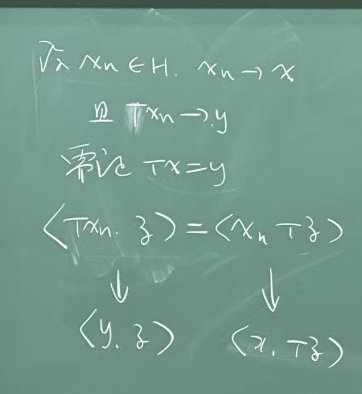 设 xₙ∈H. xₙ→x
且 Txₙ→y
需证 Tx=y
⟨Txₙ. z⟩=⟨xₙ Tz⟩
↓ ↓
⟨y, z⟩ ⟨x, Tz⟩